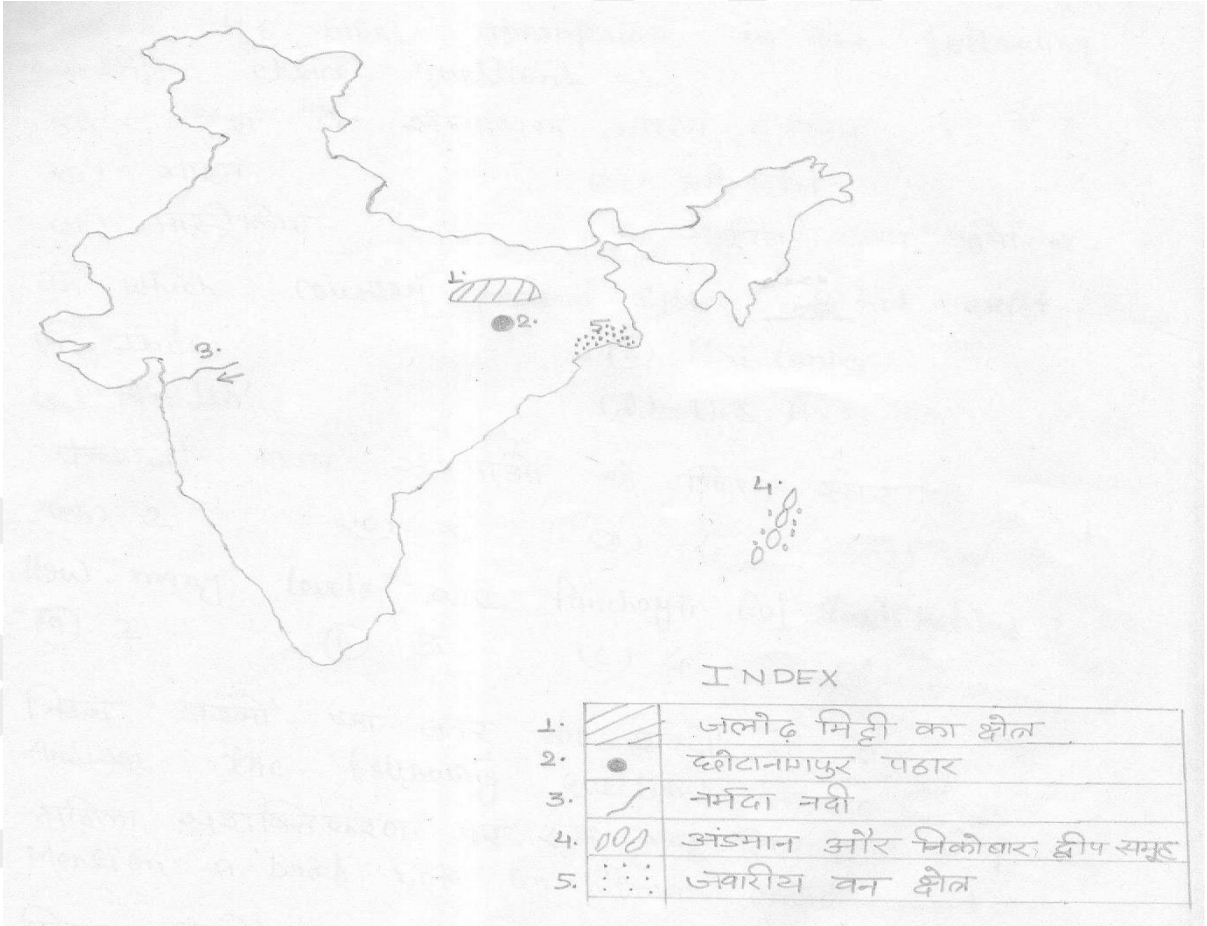 1.
2.
5.
3.
4.
INDEX
1. जलोढ़ मिट्टी का क्षेत्र
2. छोटानागपुर पठार
3. नर्मदा नदी
4. अंडमान और निकोबार द्वीप समूह
5. ज्वारीय वन क्षेत्र